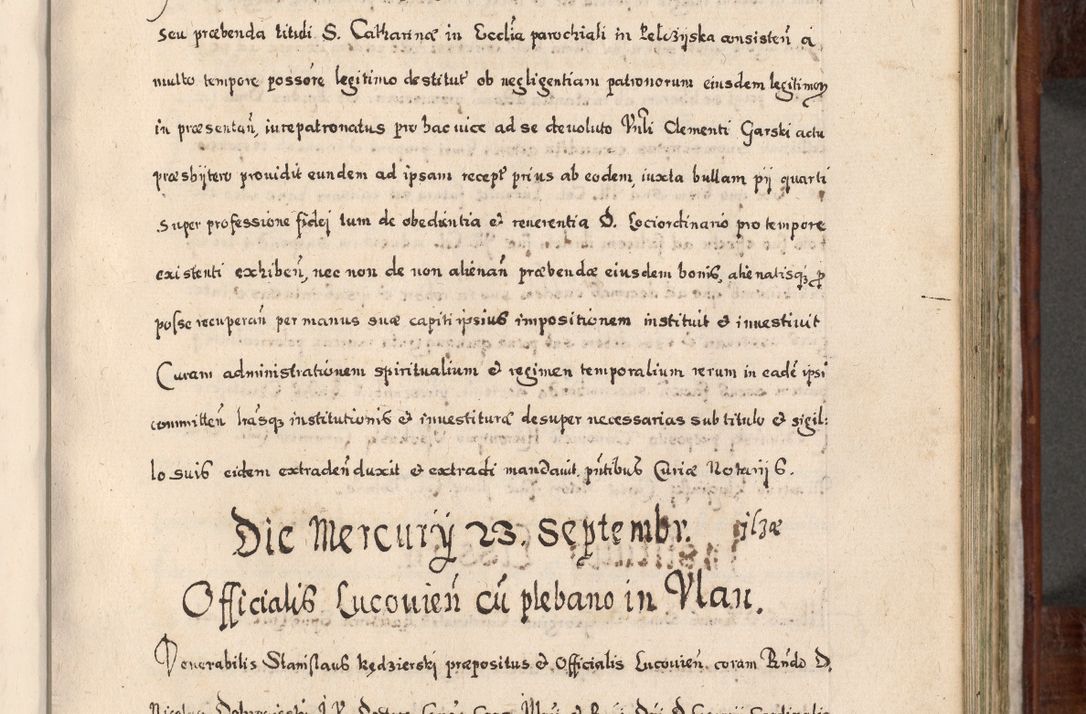 seu præbenda tituli S. Catharinæ in Ecclīa parochiali in Pełczÿska consisteñ a
multo tempore possōre legitimo destitut ob negligentiam patronorum eiusdem legitimoꝝ
in præsentañ, iurepatronatus pro hac vice ad se devoluto Vnli Clementi Garski actu
præsbÿtero providit eundem ad ipsam recept prius ab eodem, iuxta bullam pij quarti
super professione fidej tum de obediintia et reverentia D. Lociordinario pro tempore
existenti exhibeñ, nec non de non alienañ præbendæ eiusdem bonis, alienatisqꝫ ꝓ
posse recuperañ per manus suæ capiti ipsius impositionem instituit et investivit
Curam administrationem spiritualium et regimen temporalium rerum in eadē ipsi
committeñ lrāsqꝫ institutionis et investituræ desuper necessarias sub titulo et sigil:
lo suis eidem extradeñ duxit et extradi mandavit. pñtibus Curiæ Notarijs.
Die Mercurÿ 23. Septembr. ilzæ
Officialis Lucovieñ cū plebano in Vlan.
Venerabilis Stanislaus Kędzierski præpositus et Officialis Lucovien. coram Rñdo D.